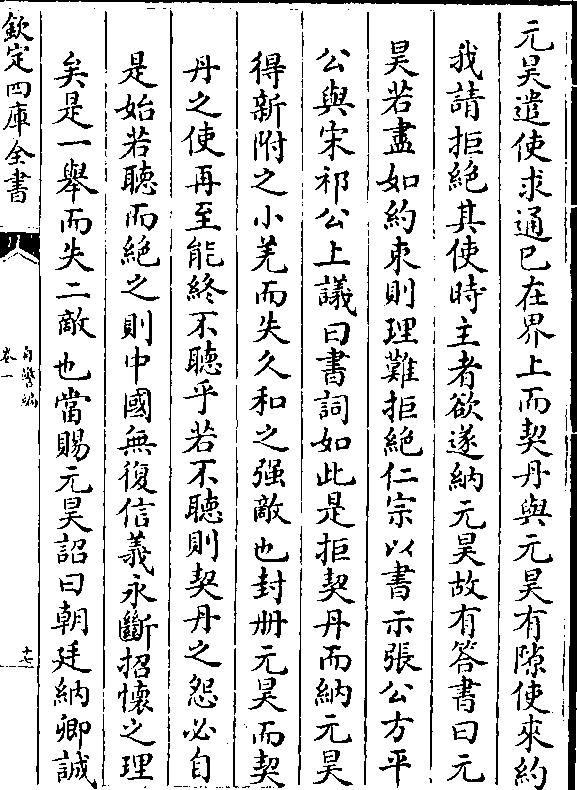 元昊遣使求通已在界上而契丹與元昊有隙使來約
我請拒絶其使時主者欲遂納元昊故有答書曰元
昊若盡如約束則理難拒絶仁宗以書示張公方平
公與宋祁公上議曰書詞如此是拒契丹而納元昊
得新附之小羌而失久和之强敵也封册元昊而契
丹之使再至能終不聽乎若不聽則契丹之怨必自
是始若聽而絶之則中國無復信義永斷招懷之理
矣是一舉而失二敵也當賜元昊詔曰朝廷納卿誠
欽定四庫全書
自警編
卷一
十七